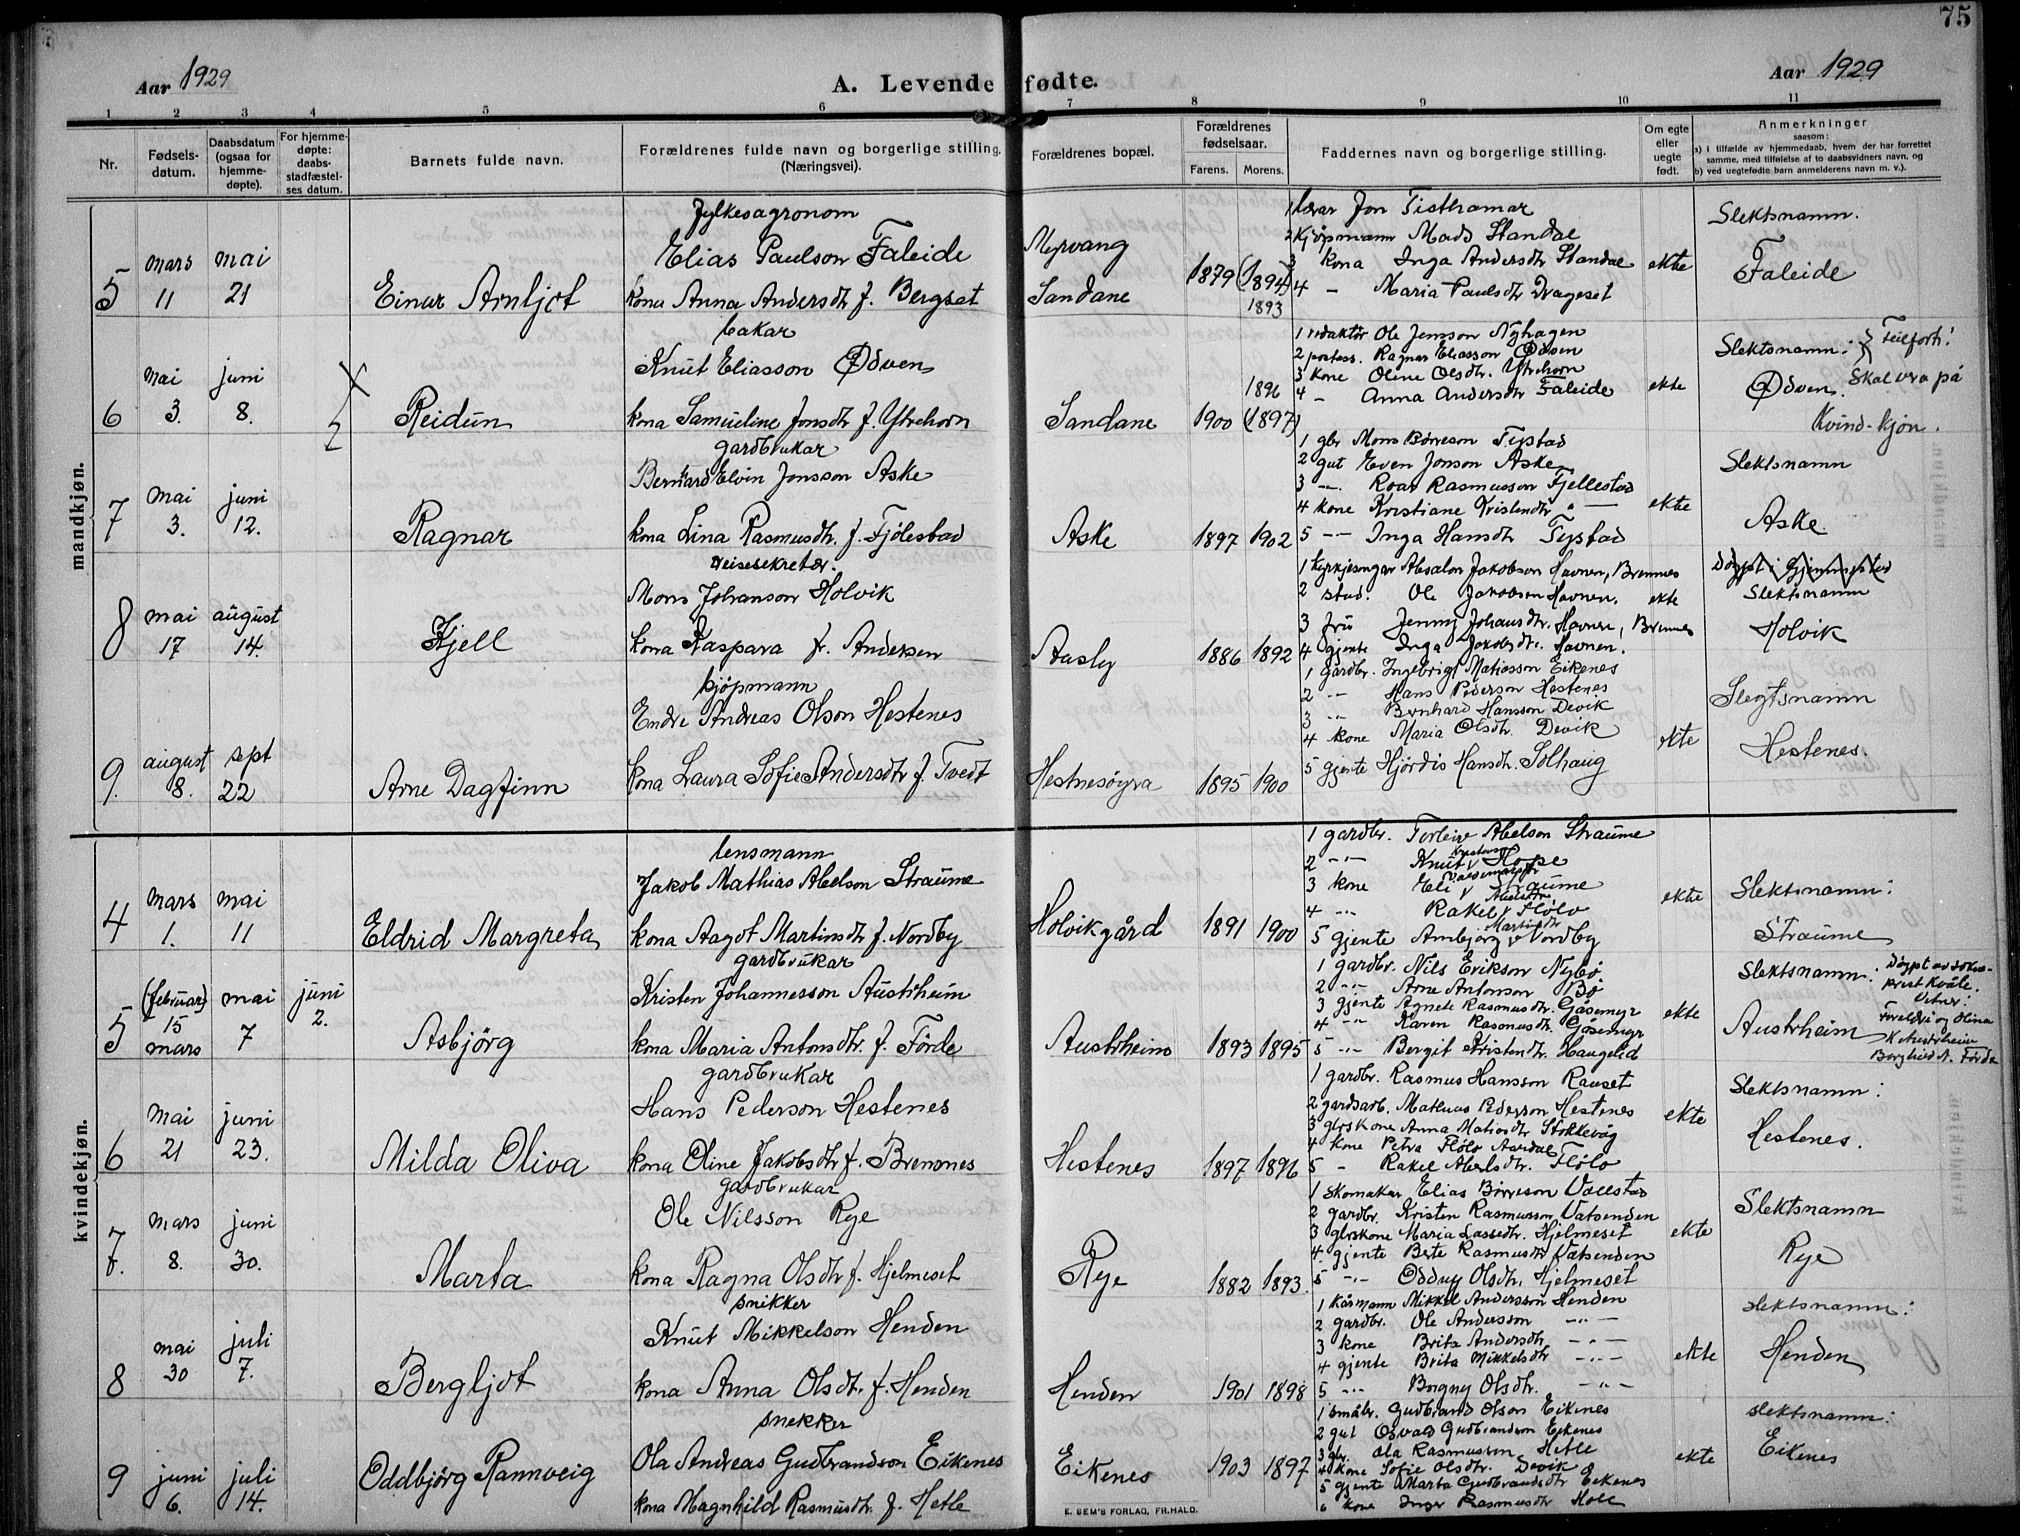 75
Aar 1929
A. Levende fødte.
Aar 1929
1 2 3 4 5 6 7 8 9 10 11
Nr.
Fødsels-
datum.
Daabsdatum
(ogsaa for
hjemme-
døpte).
For hjemme-
døpte:
daabs-
stadfæstel-
ses datum.
Barnets fulde navn.
Forældrenes fulde navn og borgerlige stilling.
(Næringsvei).
Forældrenes bopæl.
Forældrenes
fødselsaar.
Farens. Morens.
Faddernes navn og borgerlige stilling.
Om egte
eller
uegte
født.
Anmerkninger
saasom:
a) i tilfælde av hjemmedaab, hvem der har forrettet
samme, med tilføielse af to daabsvidners navn, og
b) ved uegtefødte barn anmelderens navn m. v.).
mandkjøn.
5
mars
11
mai
21
Einar Arnljot
fylkesagronom
Elias Paulson Faleide
kona Anna Andersdtr f. Bergset
Myrvang
Sandane
1879 (1894)
1893
1 lærar Jon Tisthamar
2 Kjøpmann Mads Standal
3 kona Inga Andersdtr Standal
4 – Maria Paulsdtr Drageset
ekte
Slektsnamn.
Faleide
6
mai
3.
juni
8.
Reidun
bakar
Knut Eliasson Ødven
kona Samueline Jonsdtr f. Ytrehorn
Sandane
1900
1896
(1897)
1 redaktør Ole Jensson Nyhagen
2 postass. Ragnar Eliasson Ødven
3 kone Oline Olsdtr. Ytrehorn
4 – Anna Andersdtr Faleide
ekte
Slektsnamn:
Ødven
Feilført!
Skal vera på
Kvind-kjøn.
7
mai
3.
juni
12.
Ragnar
gardbrukar
Bernhard Elvin Jonsson Aske
kona Lina Rasmusdtr. f. Fjølestad
Aske
1897 1902
1 gbr Mons Børreson Tystad
2 gut Even Jonson Aske
3 –.. Roar Rasmusson Fjellestad
4 kone Kristiane Kristendtr " —
5 –– Inga Hansdtr Tystad
ekte
Slektsnamn
Aske.
8
mai
17
august
14.
Kjell
reisesekretær.
Mons Johanson Holvik
kona Kaspara f. Andersen
Aasly
1886 1892
1 kyrkjesongar Absalon Jakobson Havnen, Bremnes
2 stud. Ole Jakobson Havnen.
3 fru Jenny Johansdtr. Havnen, Bremnes
4 gjente Inga Jakobsdtr. Havnen.
ekte
Slektsnamn
Holvik
9.
august
8.
sept
22
Arne Dagfinn
kjøpmann
Endre Andreas Olson Hestenes
kona Laura Sofie Andersdtr f. Tvedt
Hestnesøyra
1895 1900
1 gardbr. Ingebrigt Matiasson Eikenes
2 –..– Hans Pederson Hestenes
3 –..– Bernhard Hansson Devik
4 kone Maria Olsdtr. Devik
5 gjente Hjördis Hansdtr. Solhaug
ekte
Slegtsnamn
Hestenes.
kvindekjøn.
4
mars
1.
mai
11
Eldrid Margreta
lensmann
Jakob Mathias Abelson Straume
kona Aagot Martinsdtr f. Nordby
Holvikgård
1891 1900
1 gardbr. Torleiv Abelson Straume
2 –..– Knut Hope
3 kone Eli Straume
4 –..– Rakel Abelsdtr Flölo
5 gjente Ambjørg Martinsdtr Nordby
ekte
Slektsnamn:
Straume
5
(februar)
15
mars
mai
7
juni
2.
Asbjörg
gardbrukar
Kristen Johannesson Austrheim
kona Maria Antonsdtr. f. Förde
Austrheim
1893 1895
1 gardbr. Nils Erikson Nybö
2 –..– Arne Antonson Bö
3 gjente Agnete Rasmusdtr. Gåsemyr
4 –..– Karen Rasmusdtr. Gåsemyr
5 –..– Bergit Kristendtr. Haugelid
ekte
Slektsnamn:
Austrheim
Døypt av sokne-
prest Kvåle.
Vitner:
Foreldri og Olina
K. Austrheim
Borghild A. Förde
6
mai
21
juni
23.
Milda Oliva
gardbrukar
Hans Pederson Hestenes
kona Oline Jakobsdtr f. Bremnes
Hestenes
1897 1896
1 gardbr. Rasmus Hansson Rauset
2 gardsarb. Mathias Pederson Hestenes
3 gbrskone Anna Matiasdtr Stokkevåg
4 kone Petra Flölo Aardal
5 – Rakel Abelsdtr. Flölo
ekte
Slektsnamn:
Hestenes.
7.
mars
8.
juni
30.
Marta
gardbrukar
Ole Nilsson Rye
kona Ragna Olsdtr f. Hjelmeset
Rye
1882 1893.
1 Skomakar Elias Börreson Vallestad
2 gardbr. Kristen Rasmusson Vatsenden
3 gbrskone Maria Lassedtr. Hjelmeset
4. gjente Berte Rasmusdtr Vatsenden
5 –..– Oddny Olsdtr. Hjelmeset
ekte
Slektsnamn
Rye
8
mai
30
juli
7.
Bergljot
snikker
Knut Mikkelson Henden
kona Anna Olsdtr. f. Henden
Henden
1901 1898
1 kårmann Mikkel Andersson Henden
2 gardbr. Ole Andersson –..–
3 kone Brita Andersdtr –..–
4 gjente Brita Mikkelsdtr –..–
5 –..– Borgny Olsdtr. –..–
ekte
slektsnamn:
Henden
9
juni
6.
juli
14.
Oddbjörg Rannveig
snekker
Ola Andreas Gudbrandson Eikenes
kona Magnhild Rasmusdtr. f. Hetle
Eikenes
1903 1897
1 småbr. Gudbrand Olson Eikenes
2 gut Osvald Gudbrandson Eikenes
3 gbr. Ola Rasmusson Hetle
4 kone Sofie Olsdtr. Devik
5 gjente Marta Gudbrandsdtr Eikenes
6 kone Inger Rasmusdtr Holl
ekte
slektsnamn:
Eikenes
E. SEM'S FORLAG, FR.HALD.